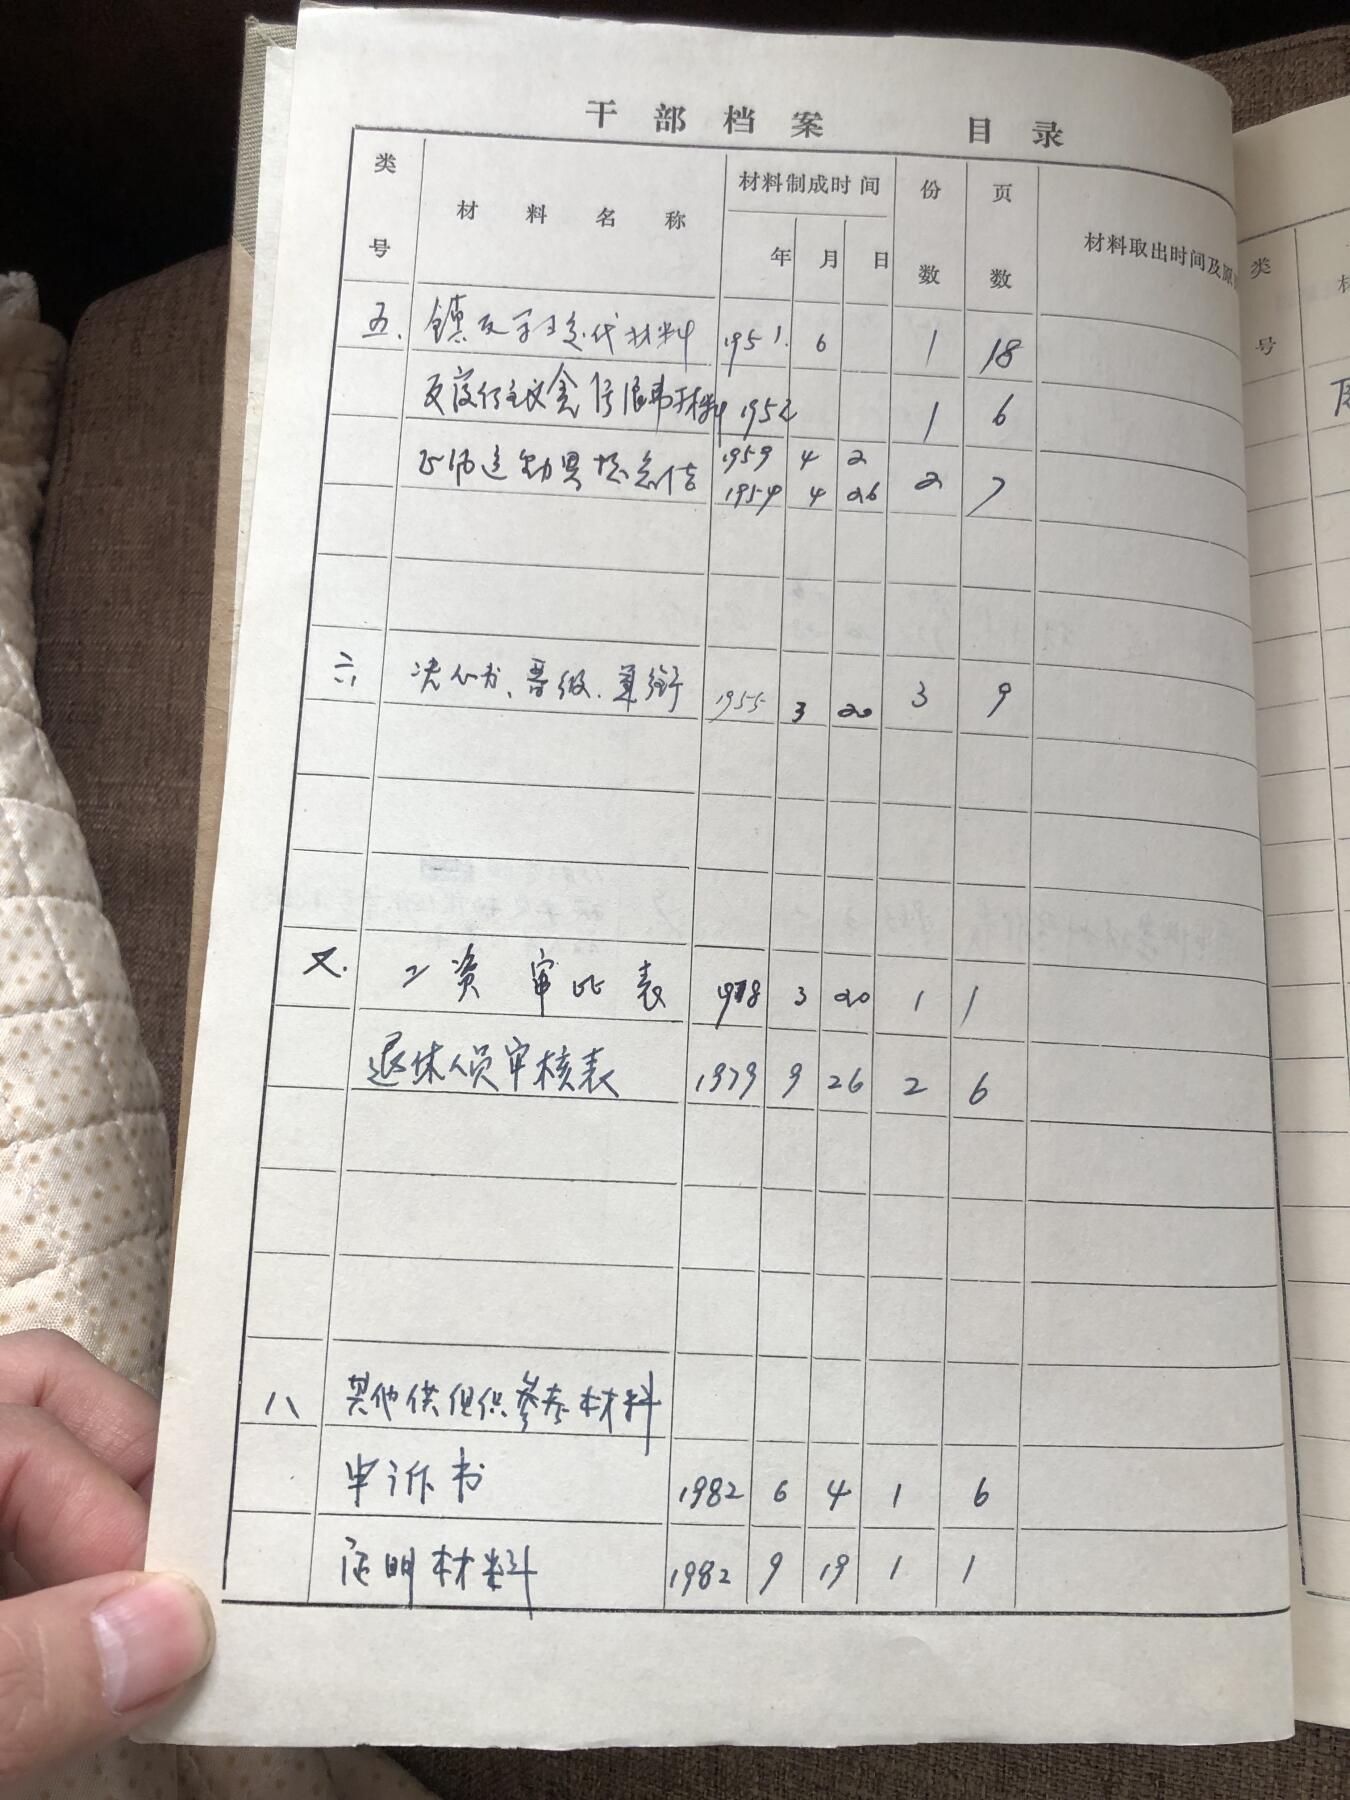 干部档案 目录
类号 材料名称 材料制成时间 年 月 日 份数 页数 材料取出时间及原
五. 镇反学习交代材料 1951. 6 1 18
1952 1 6
1959 4 2
1954 4 26 2 7
六 决心书、晋级、军衔 1955 3 20 3 9
又. 工资审批表 3 20 1 1
退休人员审核表 1979 9 26 2 6
八 其他供组织参考材料
申诉书 1982 6 4 1 6
证明材料 1982 9 19 1 1
类号